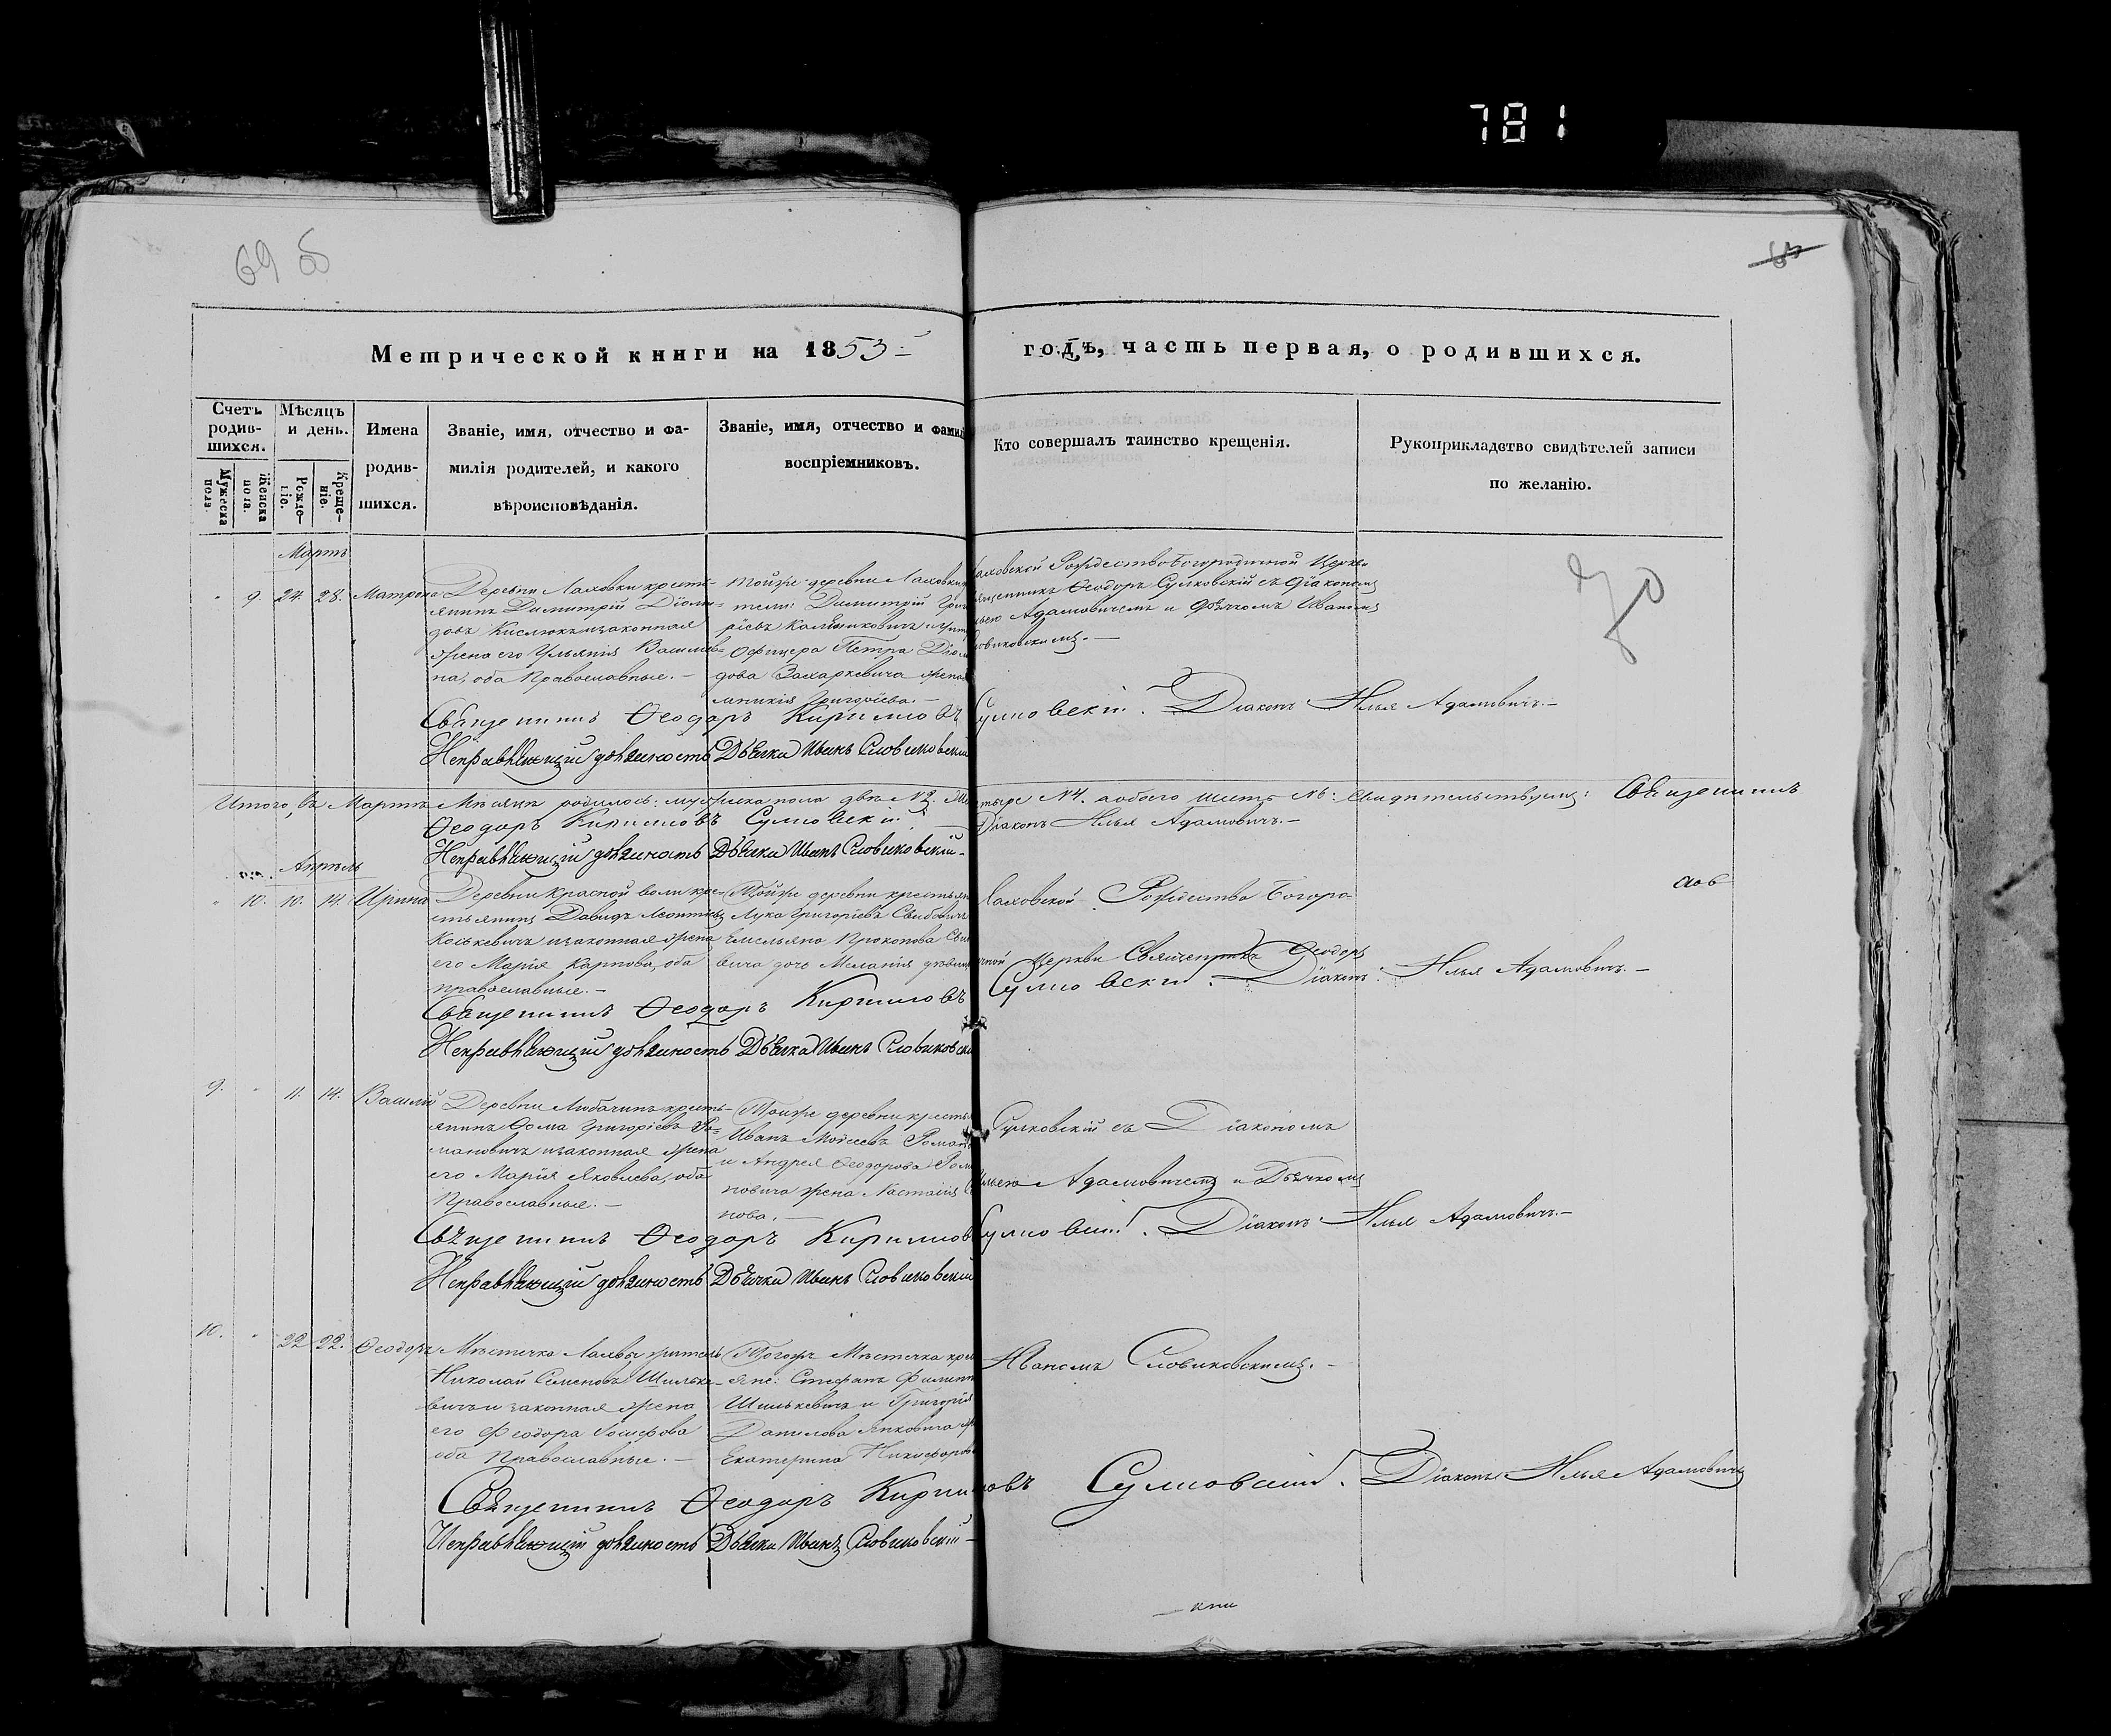 781
69 об
63
Метрической книги на 1853 годъ, часть первая, о родившихся.
Счетъ родив-шихся.
Мужеска пола.
Женска пола.
Мѣсяцъ и день.
Рожде-ніе.
Креще-ніе.
Имена родив-шихся.
Званіе, имя, отчество и фа-
милія родителей, и какого
вѣроисповѣданія.
Званіе, имя, отчество и фамил
воспріемниковъ.
Кто совершалъ таинство крещенія.
Рукоприкладство свидѣтелей записи
по желанію.
70
Мартъ
9. 24. 28. Матрона
Деревни Лаховки кресть-
янинъ Димитрій Діоми-
довъ Кислюкъ и законная
жена его Ульянія Василье-
на, оба Православные. —
Тойже деревни Лаховки
тели: Димитрій Григо
ріевъ и
Офицера Петра Діоми
дова Захаркевича жена
Григорiева. —
Лаховской Рождество Богородичной Церкви
Священникъ Ѳеодоръ Сулковскій съ Діакономъ
Адамовичемъ и Дьячкомъ Иваномъ
Словиковскимъ. —
Священникъ Ѳеодоръ Кириловъ Сулковскій. Діаконъ Илья Адамовичъ. —
Исправляющій должность Дьячка Иванъ Словиковскій
Итого, въ Мартѣ Мѣсяцѣ родилось: мужеска пола два №2. №4. а обоего шесть №6: свидѣтельствуемъ: Священникъ
Ѳеодоръ Кириловъ Сулковскій. Діаконъ Илья Адамовичъ. —
Исправляющій должность Дьячка Иванъ Словиковскій. —
Апрѣль
10. 10. 14. Ирина
Деревни Красной воли кре-
стьянинъ Давидъ Леонтіевъ
Коськевичъ и законная жена
его Марія Карпова, оба
православные. —
Тойже деревни крестьян
Лука Григоріевъ
Емельяна Прокопова
вича дочь Меланія дѣвица
Лаховской Рождества Богоро-
чной Церкви Священникъ Ѳеодоръ
Священникъ Ѳеодоръ Кириловъ Сулковскій. Діаконъ Илья Адамовичъ. —
Исправляющій должность Дьячка Иванъ Словиковскі
9. 11. 14. Василій
Деревни Любачинъ кресть-
янинъ Ѳома Григоріевъ Ро-
мановичъ и законная жена
его Марія Яковлева, оба
Православные. —
Тойже деревни кресть
Иванъ Мойсеевъ Романо
и Андрея Ѳеодорова Рома
новича жена Настасія
нова. —
Сулковскій съ Діакономъ
Ильею Адамовичемъ и Дьячкомъ
Священникъ Ѳеодоръ Кирилов Сулковскій. Діаконъ Илья Адамовичъ. —
Исправляющій должность Дьячка Иванъ Словиковскій
10. 22 22. Ѳеодоръ
Мѣстечка Лахвы житель
Николай Семеновъ Шилько-
вичъ и законная жена
его Ѳеодора Іосифова
оба Православные. —
Тогожъ Мѣстечка кре
яне: Стефанъ Филипп
Шилькевичъ и Григорія
Данилова Янковича ж
Екатерина Никифоров
Иваномъ Словиковскимъ. —
Священникъ Ѳеодоръ Кириловъ Сулковскій. Діаконъ Илья Адамовичъ
Исправляющій должность Дьячка Иванъ Словиковскій —